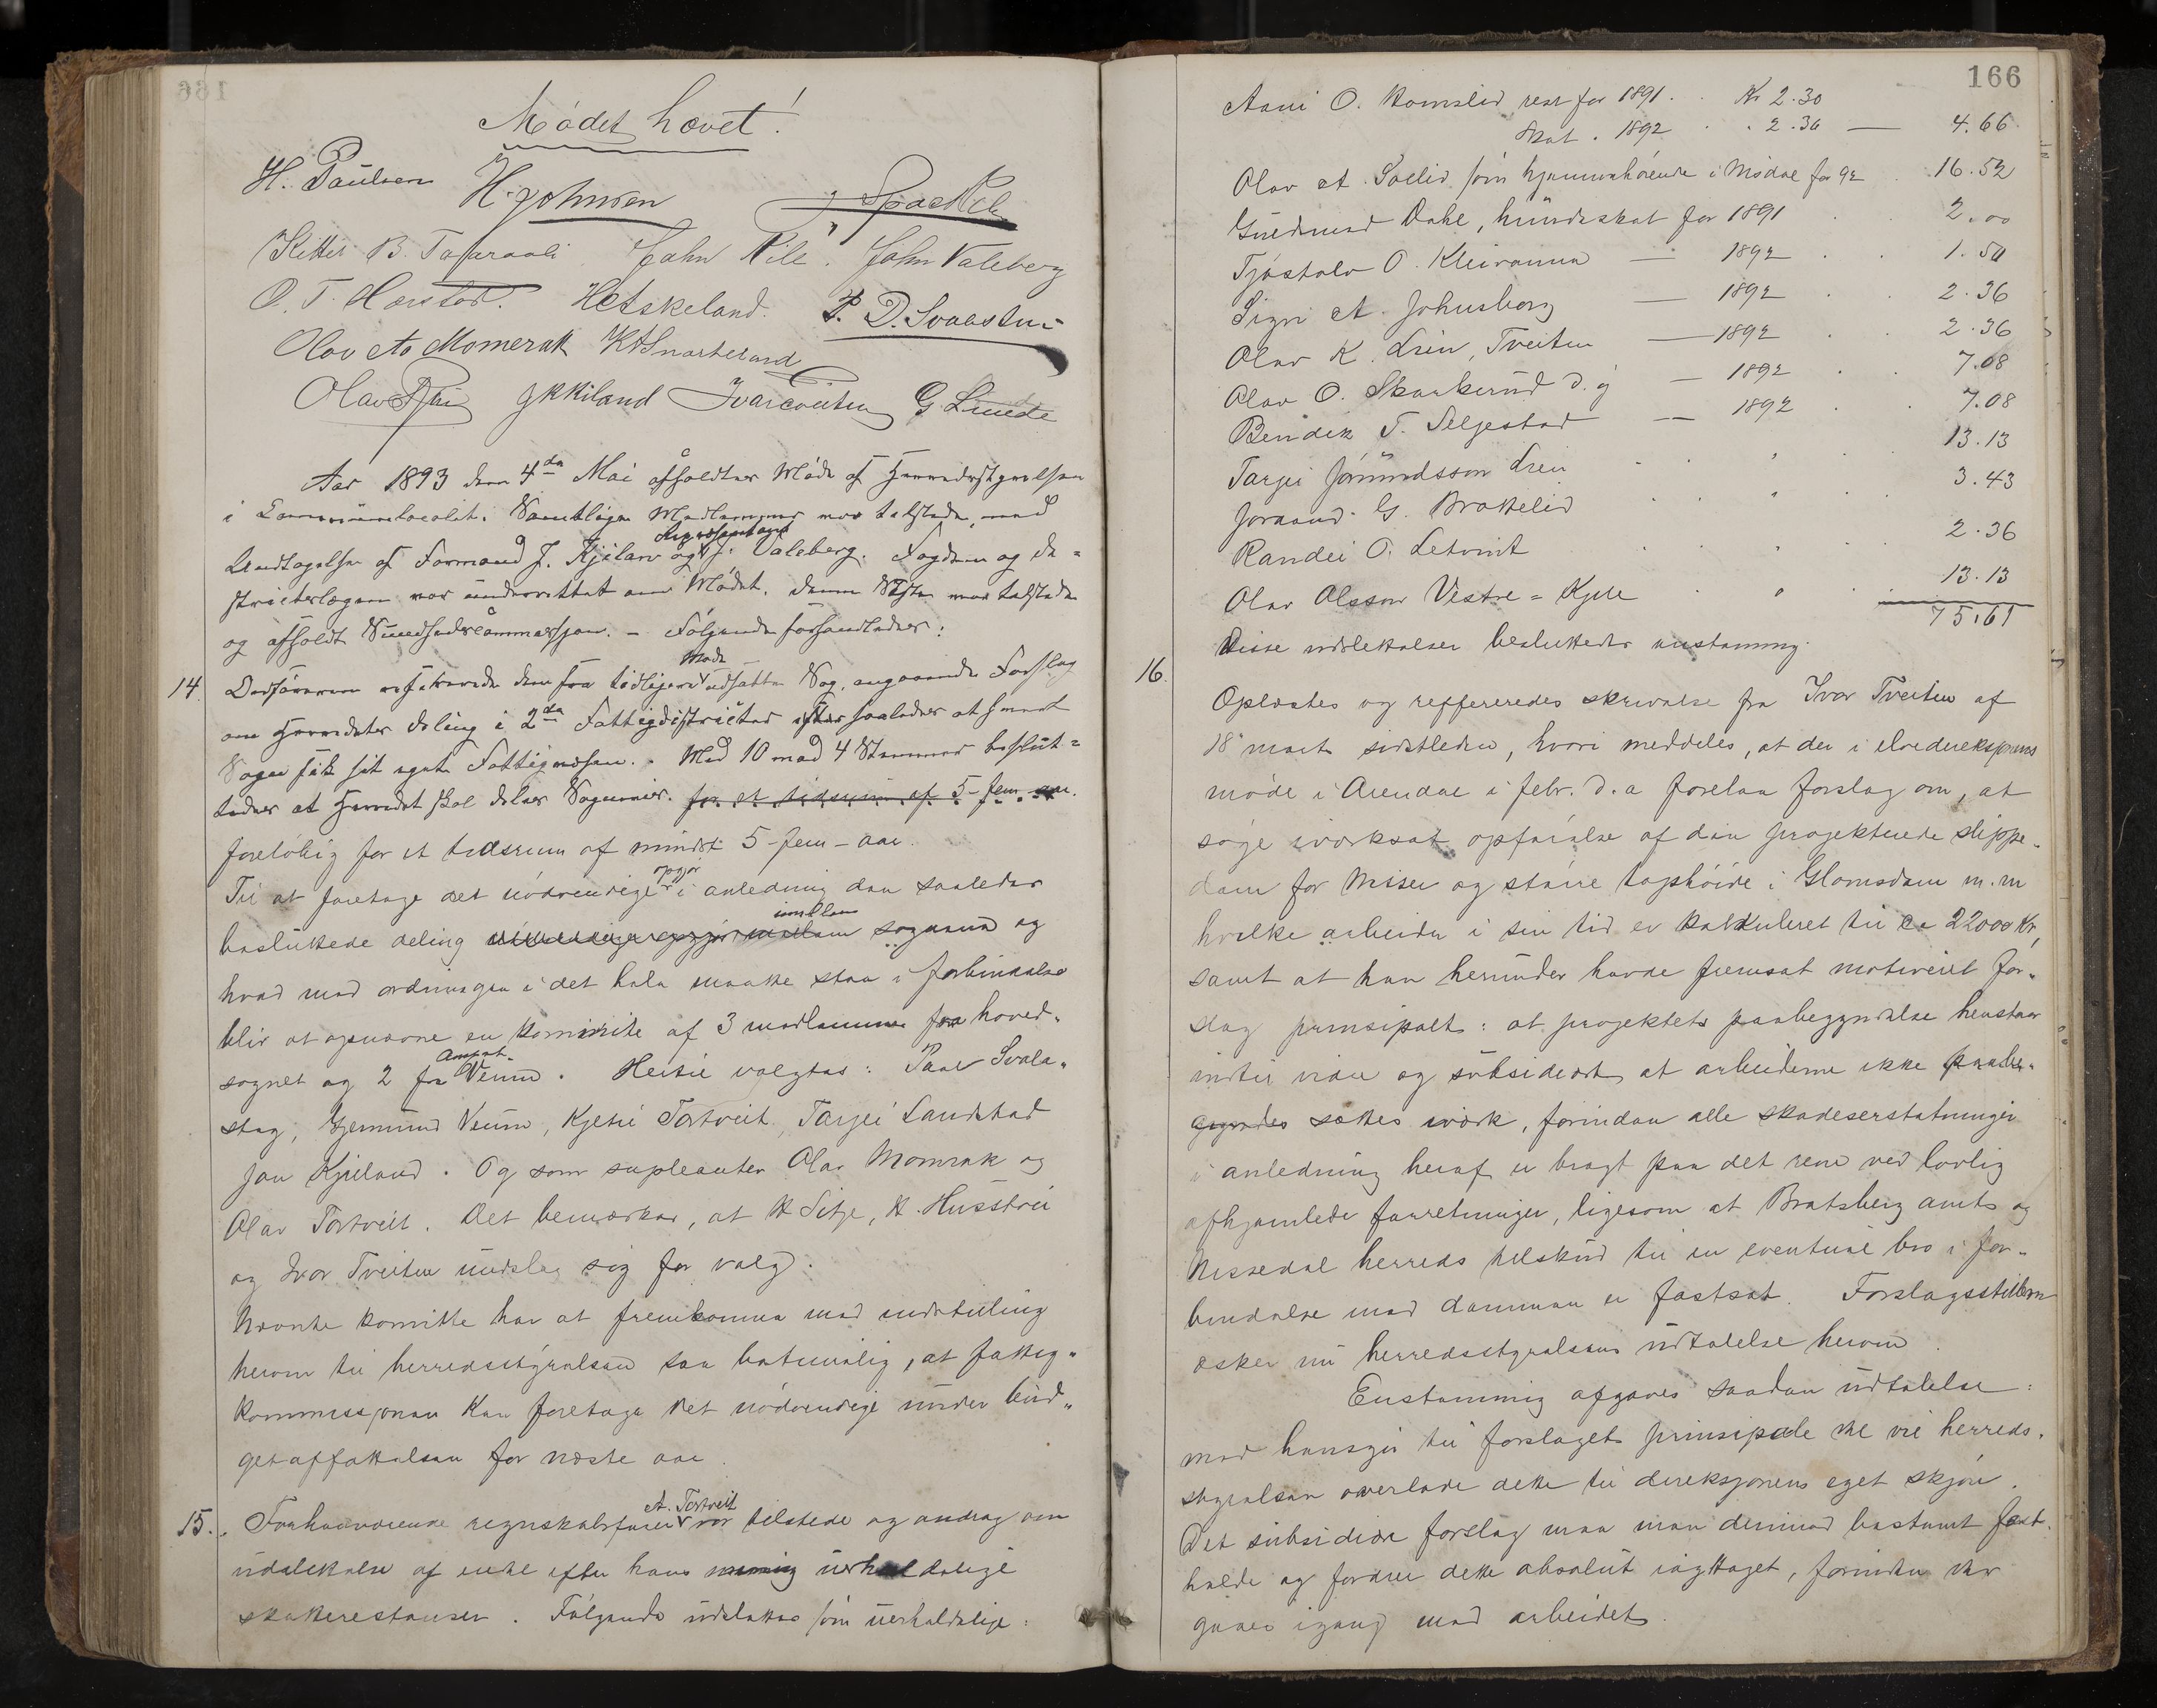 Mødet hævet!
H. Paulsen H. Johnsen
Kittil B. Tofsraali John Kile. John Valeberg
O. T. Harstad. H A Askeland. P. D. Svalastu-
Olav A Momrak K A Snarteland
Olav J K Kiland Ivar Tveiten G. Linde
Aar 1893 den 4de Mai afholdtes Møde af Herredsstyrelsen
i Communelocalet. Samtlige Medlemmer var tilstede, med
Undtagelse af Formand J. Kjilan og Repræsentant J. Valeberg. Fogden og Di-
strictslægen var underrettet om Mødet. Denne Sidste var tilstede
og afholdt Sundhedscommission. – Følgende forhandledes:
14. Ordføreren refererede den fra tidligere Møde udsatte Sag, angaaende Forslag
om Herredets Deling i 2de Fattigdistricter saaledes at hvert
Sogn fik sit eget Fattigvæsen. Med 10 mod 4 Stemmer beslut-
tedes at Herredet skal deles Sognevis. for et tidsrum af 5- fem aar.
foreløbig for et tidsrum af mindst 5-fem-aar.
Til at foretage det nødvendige opgjør i anledning den saaledes
besluttede deling imellem sognene og
hvad med ordningen i det hele maatte staa i forbindelse
blir at opnævne en kommite af 3 medlemmer fra hoved-
sognet og 2 fra Annexet Veum. Hertil valgtes: Paal Svala-
stog, Gjermund Veum, Kjetil Tortveit, Tarjei Landstad
Jon Kjiland. Og som supleanter Olav Momrak og
Olav Tortveit. Det bemærkes, at K Sitje, K. Husstvei
og Ivar Tveiten undslog sig for valg.
Nævnte komitte har at fremkomme med indstilling
herom til herredsstyrelsen saa betimelig, at fattig-
kommissjonen kan foretage det nødvendige under bud-
getaffattelsen for næste aar.
15. Forhenværende regnskabsfører A. Tortveit var tilstede og androg om
udslettelse af endel efter hans mening uerholdelige
skatterestanser. Følgende udslettes som uerholdelige:
166
Aani O. Komslid rest for 1891. Kr 2.30
Skat. 1892 . 2.36 — 4.66
Olav A. Solid som hjemmehørende i Mødal for 92 16.52
Gudmund Dahl, hundeskat for 1891 2.00
Tjøstolv O. Kleivanna — 1892 1.50
Signi A. Johnsborg — 1892 2.36
Olav K. Lien, Tveiten — 1892 2.36
Olav O. Skarkerud d.y — 1892 7.08
Bendik T. Seljestad — 1892 7.08
Tarjei Jørundsson Lien 13.13
Joraand G. Brattelid 3.43
Randei O. Letveit 2.36
Olav Olsson Vestre-Kjile 13.13
75.61
Disse udslettelser besluttedes enstemmig.
16. Oplæstes og reffereredes skrivelse fra Ivar Tveiten af
18 marts sidstleden, hvori meddeles, at der i elvedireksjonens
møde i Arendal i febr. d.a forelaa forslag om, at
søge iværksat opførelse af den projekterede slippe-
dam for Nisser og større taphøide i Glomsdam m.m
hvilke arbeider i sin tid er kalkuleret til ca 22000 Kr,
samt at han herunder havde fremsat motiveret for-
slag prinsipalt: at projektets paabegyndelse henstaar
indtil videre og subsidiært, at arbeiderne ikke paabe-
gyndes sættes iværk, forinden alle skadeserstatninger
i anledning heraf er bragt paa det rene ved lovlig
afhjemlede forretninger, ligesom at Bratsberg amts og
Nissedal herreds tilskud til en eventuel bro i for-
bindelse med dammen er fastsat. Forslagsstilleren
æsker nu herredsstyrelsens udtalelse herom.
Enstemmig afgaves saadan udtalelse:
med hensyn til forslagets prinsipale del vil herreds-
styrelsen overlade dette til direksjonens eget skjøn.
Det subsidiære forslag maa man derimod bestemt fast-
holde og fordrer dette absolut iagttaget, forinden der
gaaes igang med arbeidet.